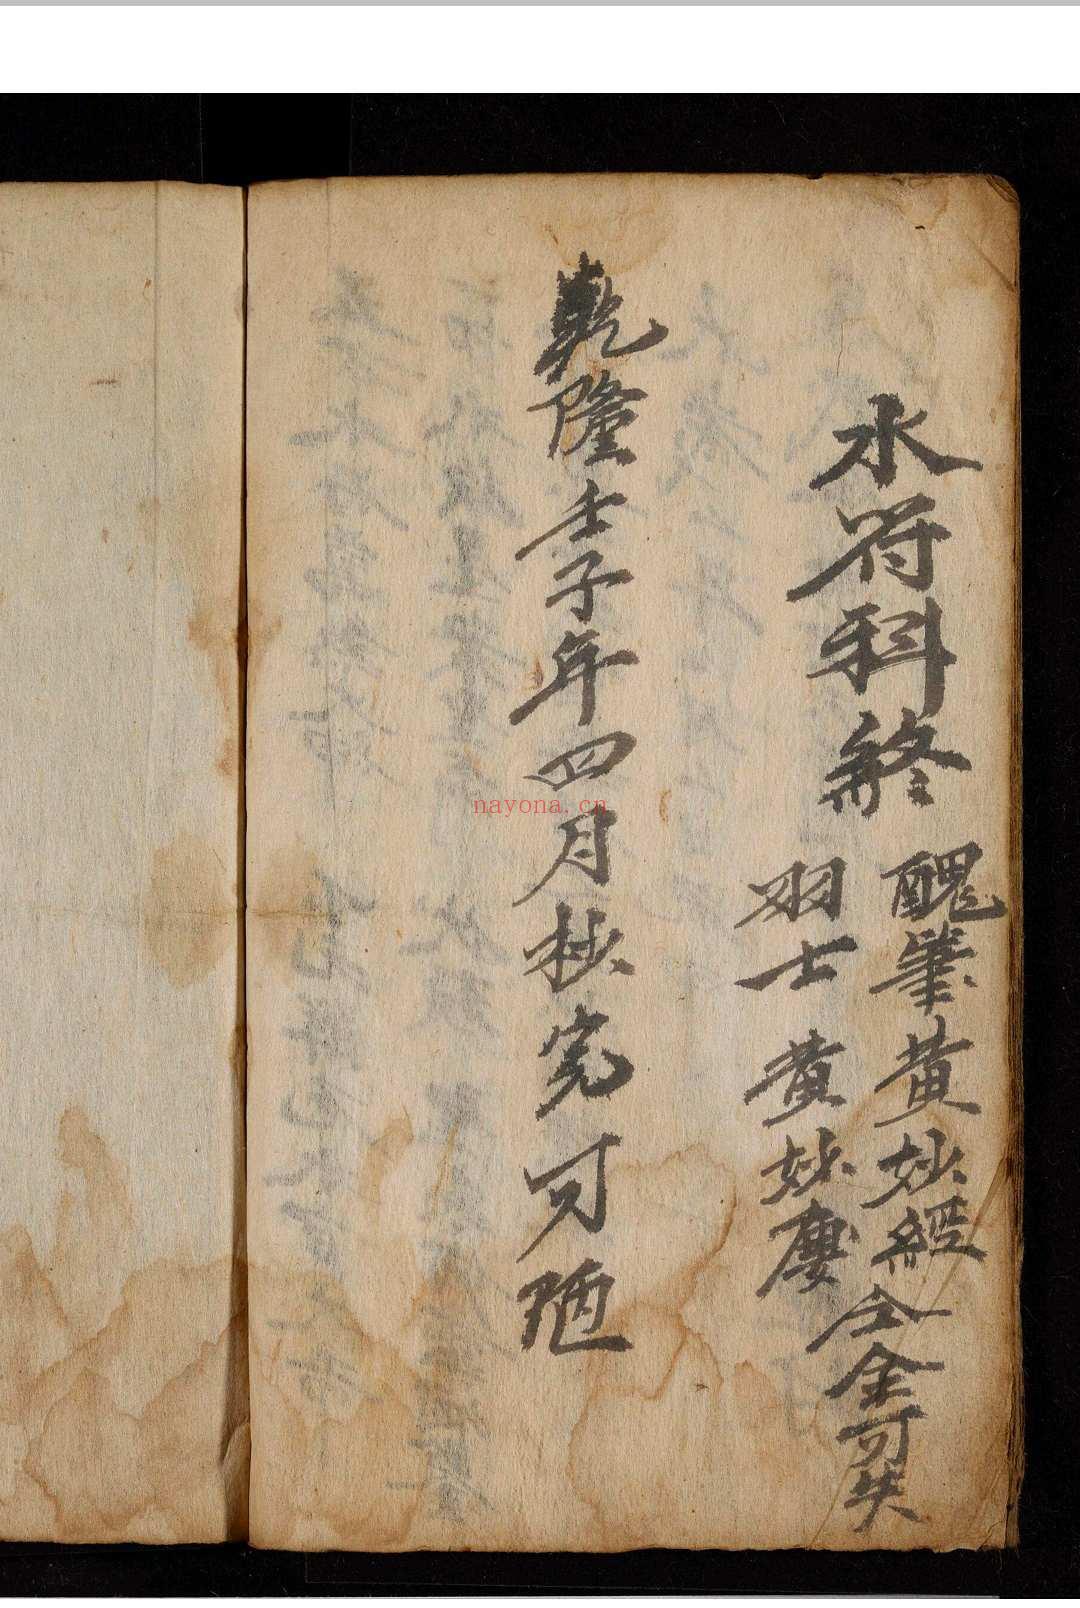 水符科終
醜筆黄妙經
羽士黄妙慶
全金可笑
乾隆壬子年四月抄完可陋
nayona.cn